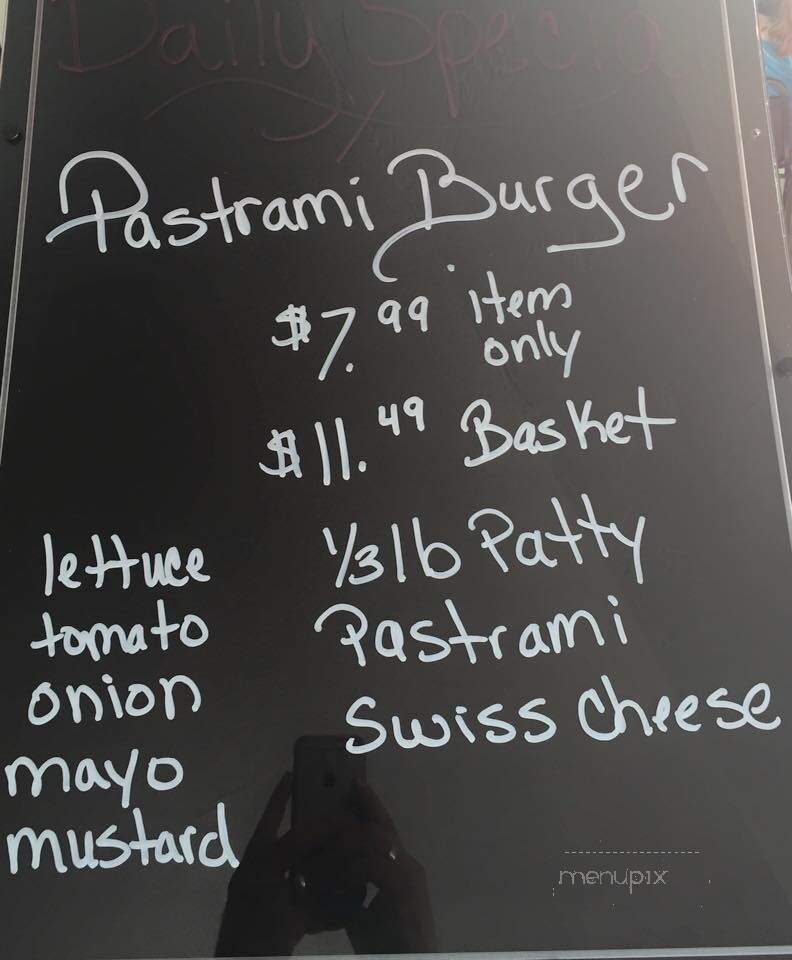 Daily Special
Pastrami Burger
$7.99 item
only
$11.49 Basket
lettuce 1/3 lb Patty
tomato Pastrami
onion Swiss Cheese
mayo
mustard
menupix